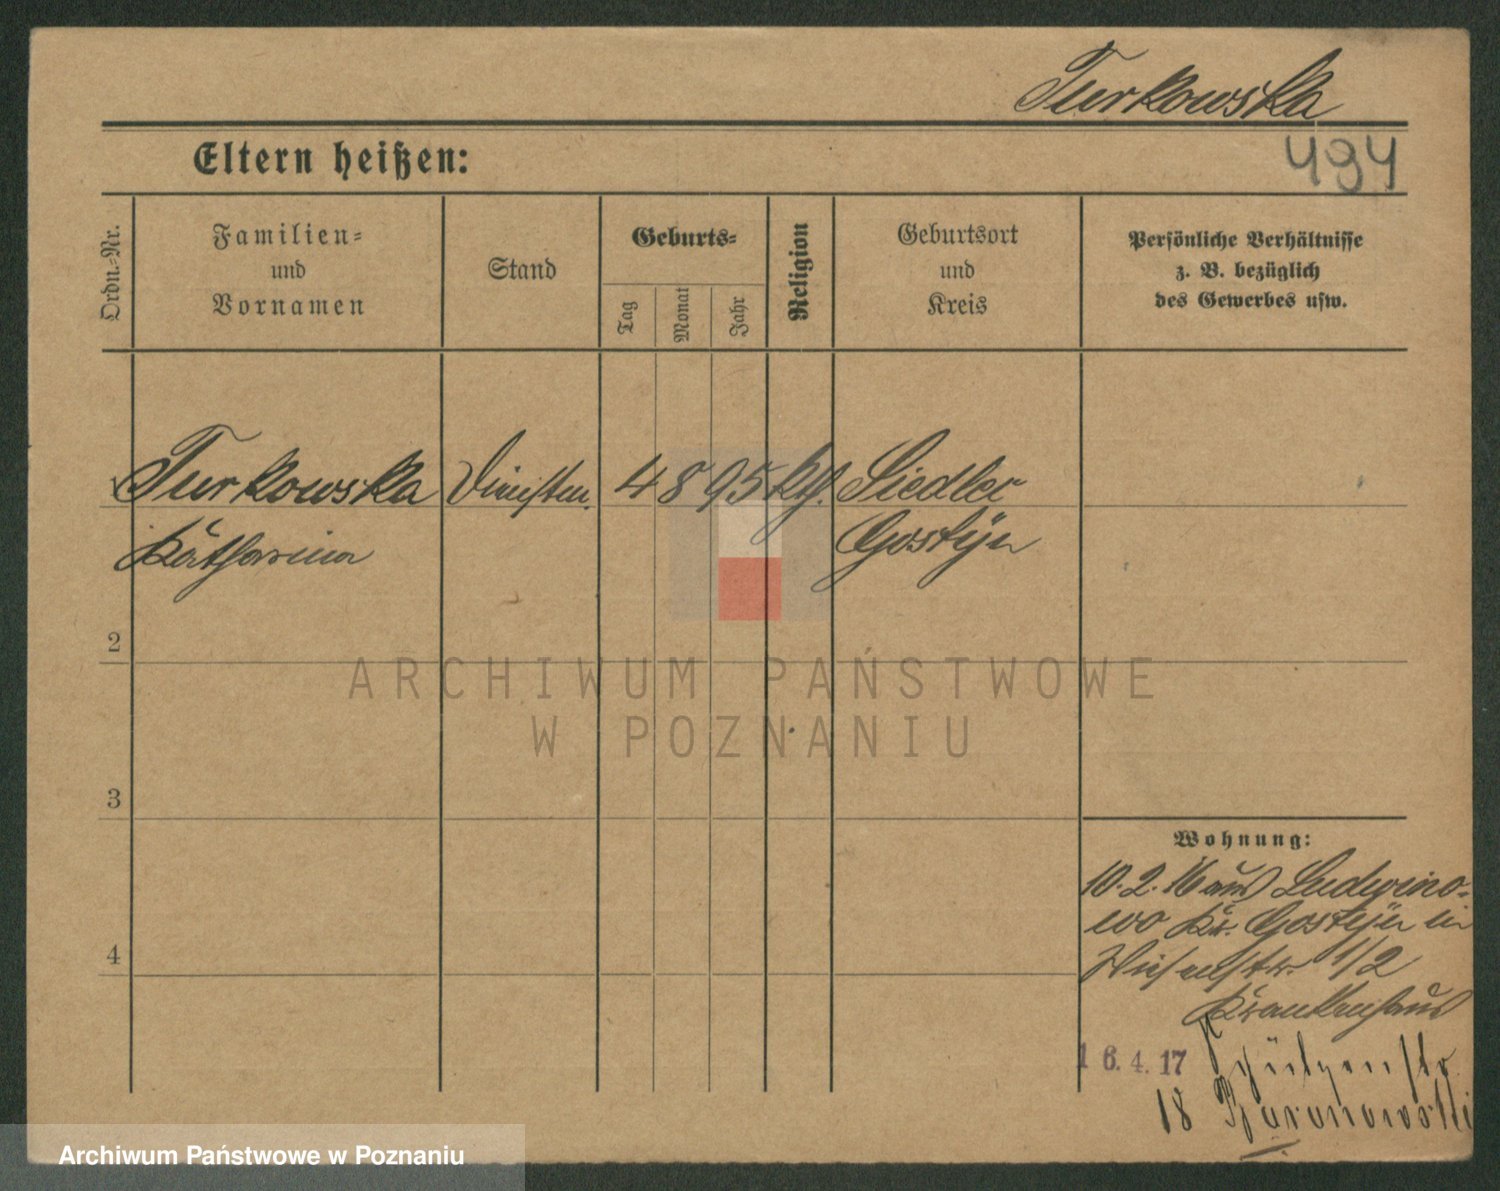 Turkowska
494
Eltern heißen:
Ordn.-Nr.
Familien-
und
Vornamen
Stand
Geburts-
Tag
Monat
Jahr
Religion
Geburtsort
und
Kreis
Persönliche Verhältnisse
z. B. bezüglich
des Gewerbes usw.
1 Turkowska
Katharina
4 8 95 kth.
Siedlec
Gostyn
2
3
4
ARCHIWUM PAŃSTWOWE
W POZNANIU
Wohnung:
10.2.16 aus Ludwino-
wo Kr. Gostyn in
Wiesenstr. 1/2
Krankenhaus
16.4.17 Schützenstr.
18 Baranowski
Archiwum Państwowe w Poznaniu